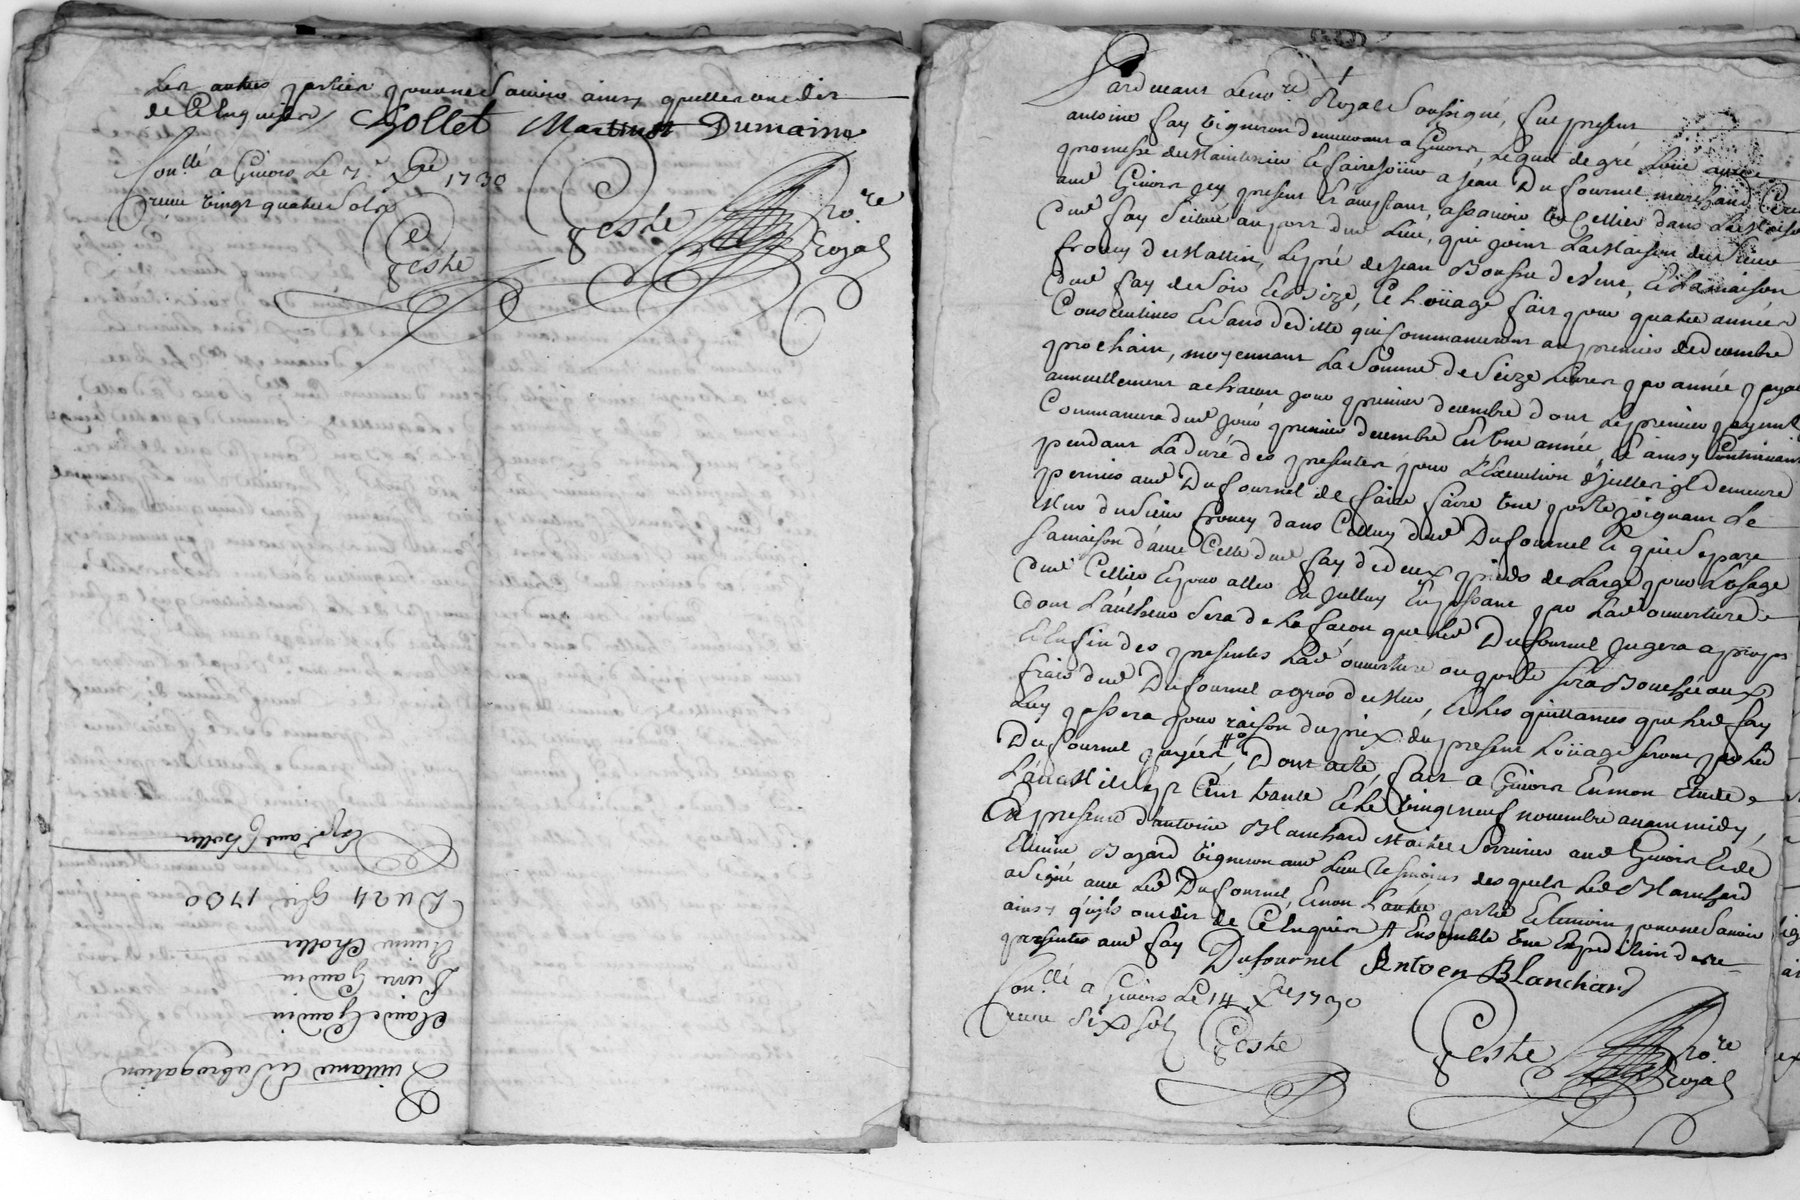 Les autres parties pour ne savoir ainsy quelles ont dit
de ce enquises Chollet Martinot Dumaine
Conllé a Givors le 7e Xbre 1730
Receu vingt quatre sols
Geste
Geste No.re Royal
Quittance et Subrogation
Claude Gaudin
Pierre Gaudin
Chollet
Du 24 9bre 1730
Chollet
Pardevant le no.re Royal soussigné, fut present
antoine fay vigneron demeurant a Givors, lequel de gré loüe avec
promesse de maintenir et faire joüir a Jean Dufournel marchand
aud Givors icy present et acceptant, assavoir un Cellier dans la maison
dud fay scituée au port dud lieu, qui joint la maison du sieur
froucy de matin, le pré de Jean de vent, et la maison
dud fay de soir et bize, le loüage fait pour quatre années
Consecutives et sans deditte qui commanceront au premier decembre
prochain, moyennant la somme de seize livres par année
annuellement a chacun jour premier decembre dont le premier payement
Commancera dud jour premier decembre en une année, et ainsy Continuant
pendant la duré des presentes, pour l'Execution d'jcelles il demeure
permis aud Dufournel de faire faire une porte joignant le
mur du sieur froucy dans celluy dud Dufournel et qui separe
sa maison d'avec celle dud fay de deux pieds de large pour l'usage
dud Cellier et pour aller en jcelluy En passant par lad ouverture
dont l'auteur sera de la façon que led Dufournel jugera a propos
Et la fin des presentes lad ouverture ou porte sera Bouchée aux
frais dud Dufournel a gros de mur, et les quittances que led fay
luy passera pour raison du prix du present loüage seront par led
Dufournel payées, Dont acte, fait a Givors En mon Etude
L'an mil sept Cent trante et le vingt neuf novembre avant midy,
En presence d'antoine Blanchard maitre serrurier aud Givors et de
Etienne Bazard vigneron aud lieu tesmoins desquels led Blanchard
a signé avec led Dufournel, Et non l'autre partie et temoin pour ne savoir
ainsy qu'ils ont dit de ce enquis Ensemble une Expedition des
presentes aud fay Dufournel Antoen Blanchard
Conllé a Givors le 14 Xbre 1730
Receu six sols
Geste
Geste No.re Royal